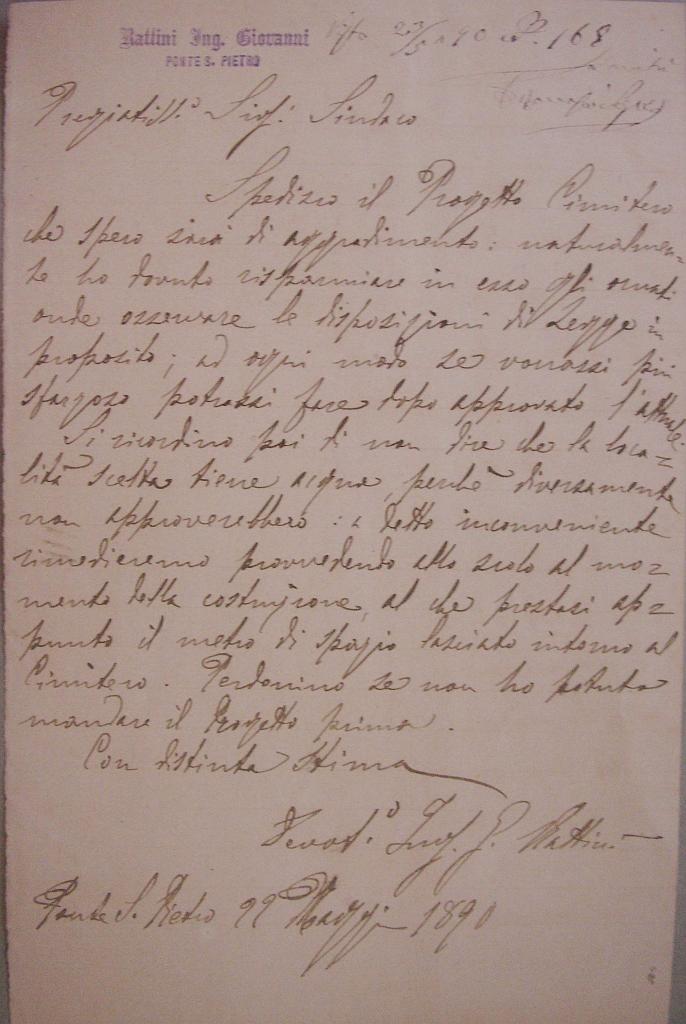 Rattini Ing. Giovanni
PONTE S. PIETRO
23/5 90 P. 168
Pregiatiss.o Sig.r Sindaco
Spedisco il Progetto Cimitero
che spero sarà di aggradimento: naturalmen=
te ho dovuto risparmiare in esso gli ornati
onde osservare le disposizioni di Legge in
proposito; ad ogni modo se vorrassi più
sfarzoso potrassi fare dopo approvato l'attuale.
Si ricordino poi di non dire che la loca=
lità scelta tiene acqua, perchè diversamente
non approverebbero: a detto inconveniente
rimedieremo provvedendo allo scolo al mo=
mento della costruzione, al che prestasi ap=
punto il metro di spazio lasciato intorno al
Cimitero. Perdonino se non ho potuto
mandare il Progetto prima.
Con distinta stima
Devot.o Ing. G. Rattini
Ponte S. Pietro 22 Maggio 1890